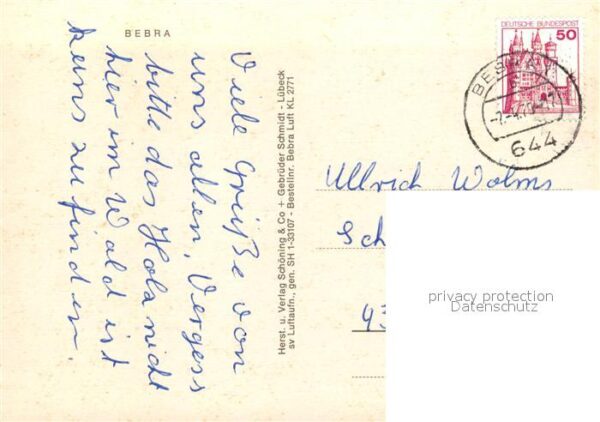 BEBRA
Viele Grüße von
uns allen, Vergess
bitte das Holz nicht
hier im Wald ist
keins zu finden.
Herst. u. Verlag Schöning & Co + Gebrüder Schmidt - Lübeck
sv Luftaufn., gen. SH 1-33107 - Bestellnr. Bebra Luft KL 2771
DEUTSCHE BUNDESPOST
50
BEBRA
644
Ullrich Wolms
Sch
43
privacy protection
Datenschutz